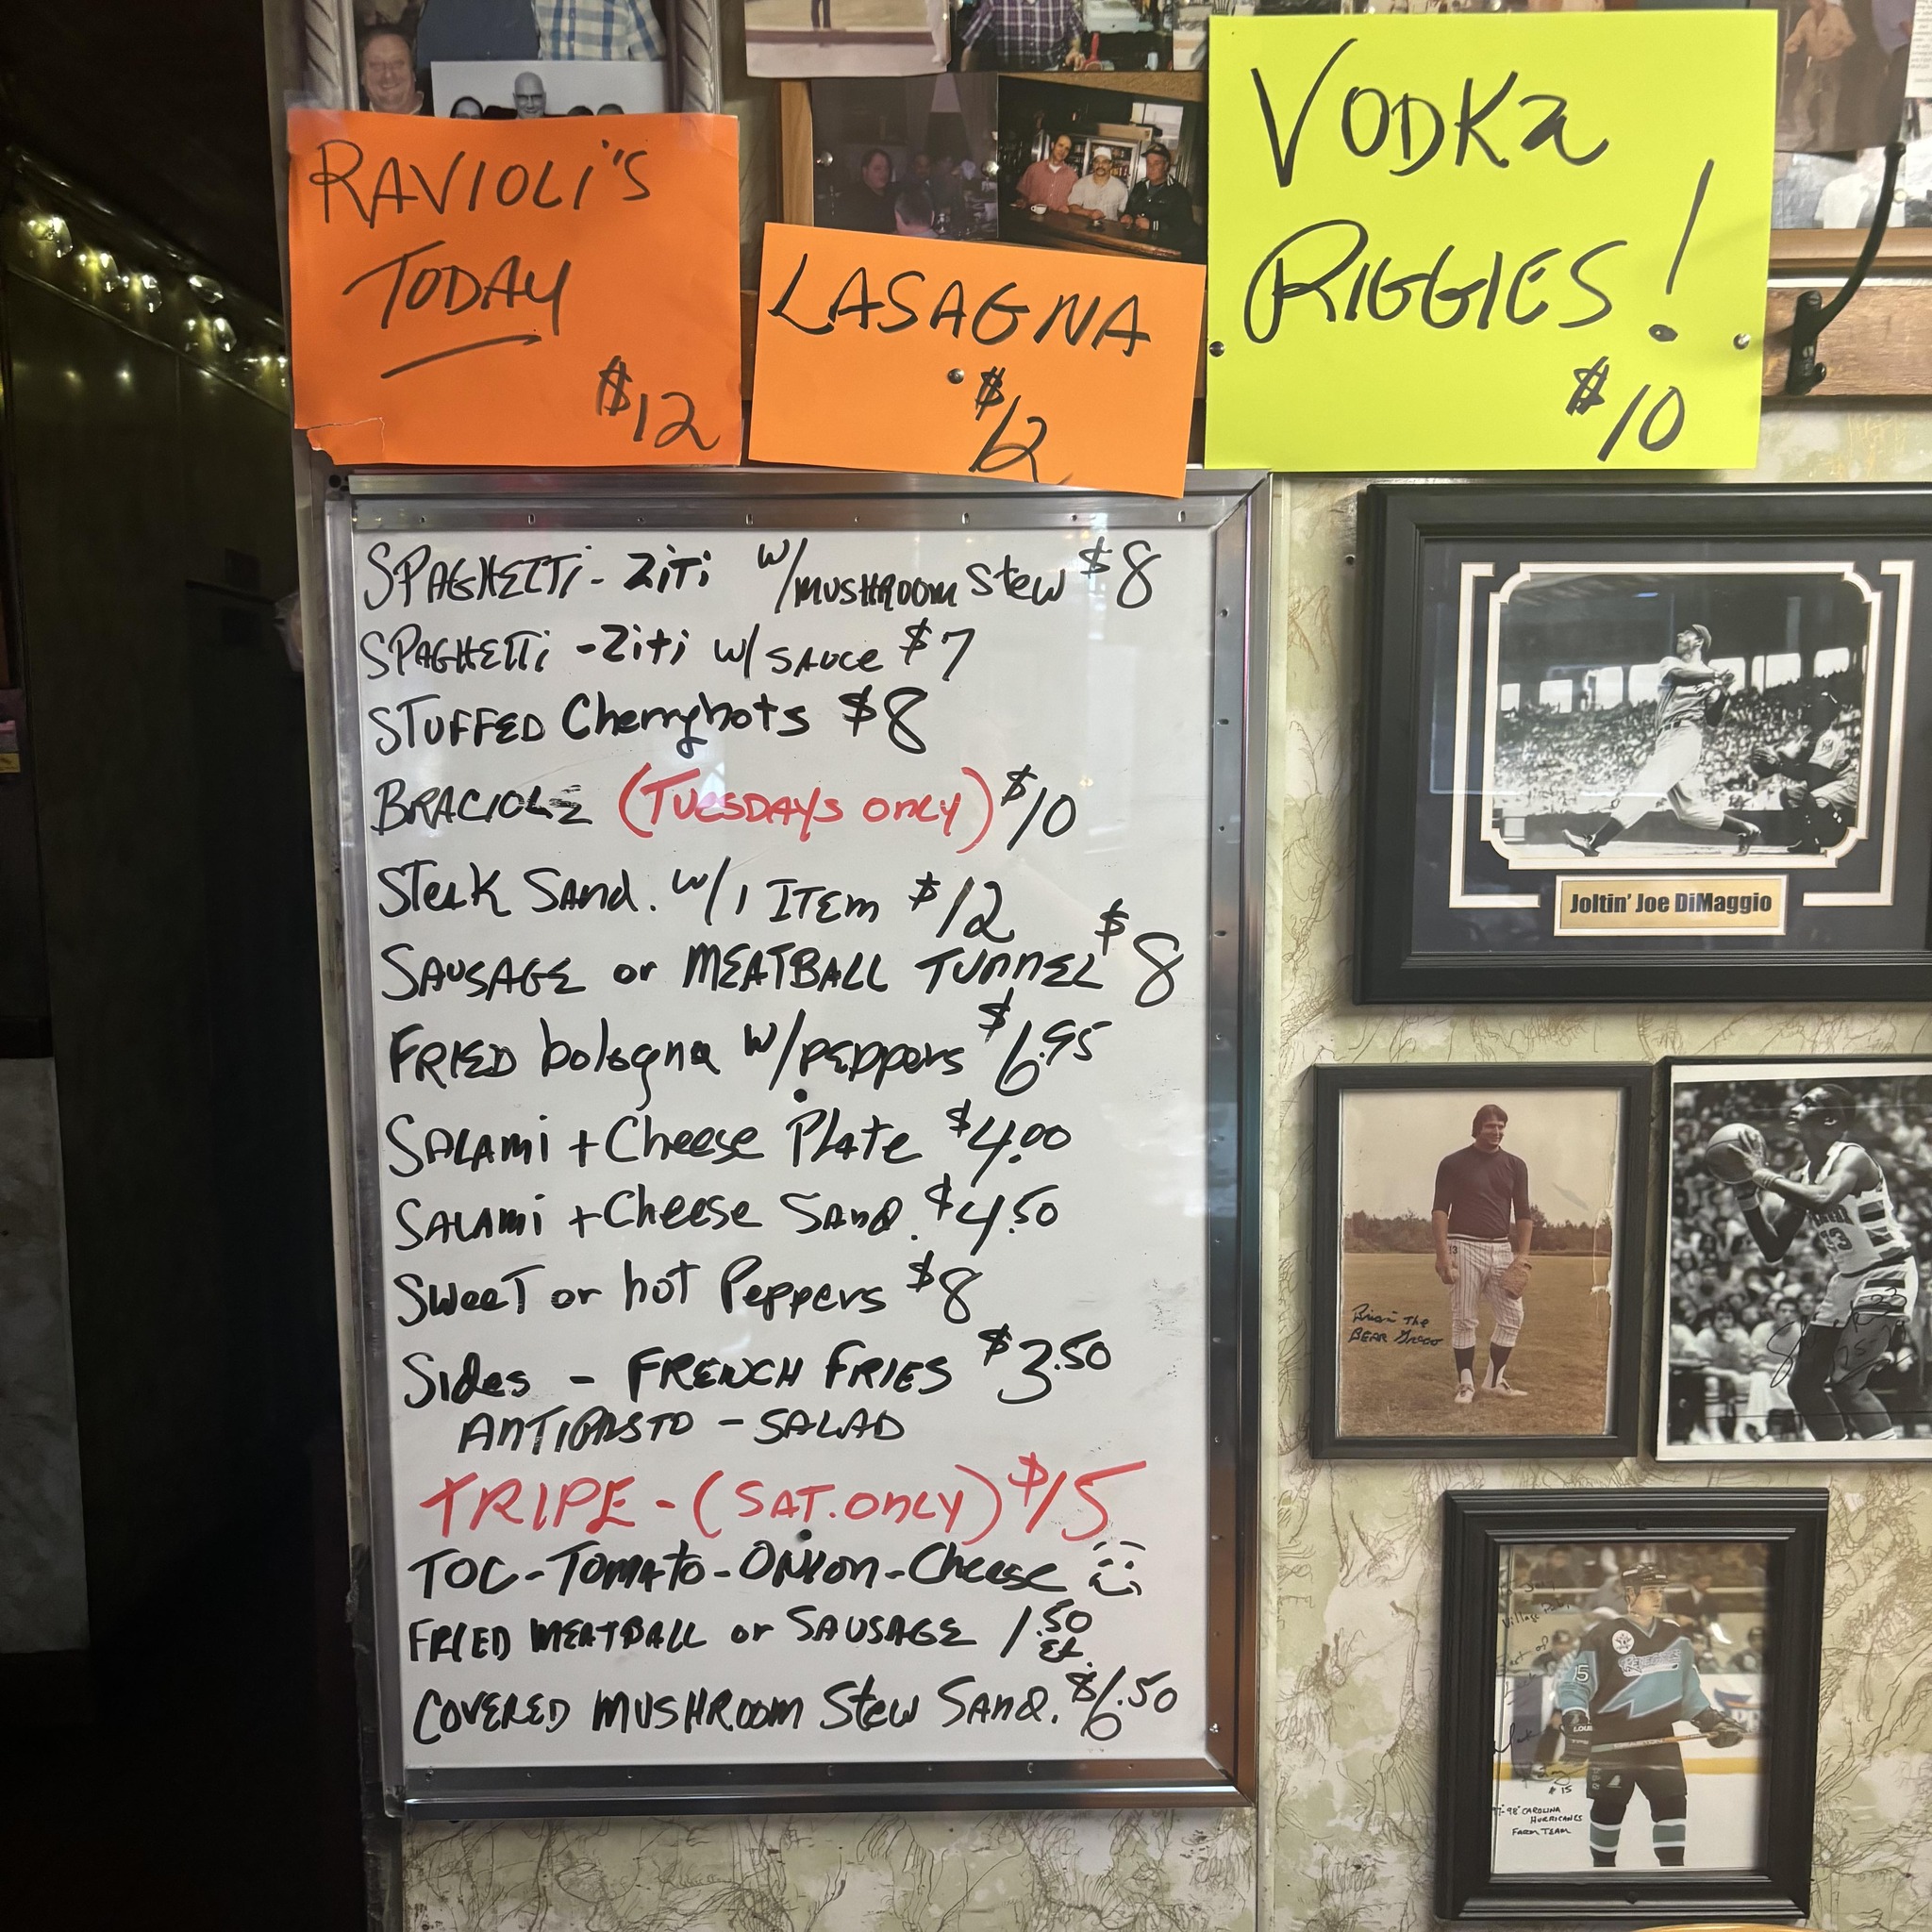 RAVIOLI'S
TODAY
$12
LASAGNA
$12
VODKa
RIGGIES!
$10
SPAGHETTi - ZiTi w/MUSHROOM Stew $8
SPAGHETTi - Ziti w/ SAUCE $7
STUFFED Cherryhots $8
BRACIOLE (TUESDAYS ONLY) $10
Steak Sand. w/1 ITEM $12
SAUSAGE or MEATBALL TUNNEL $8
FRIED bologna w/PEPPers $6.95
SALAMi + Cheese Plate $4.00
SALAMi + Cheese Sand. $4.50
Sweet or hot Peppers $8
Sides - FRENCH FRIES $3.50
ANTIPASTO - SALAD
TRIPE - (SAT. ONLY) $15
TOC - Tomato - Onion - Cheese
FRIED MEATBALL or SAUSAGE 1.50 EA.
COVERED MUSHROOM Stew Sand. $6.50
Joltin' Joe DiMaggio
Brian The
BEAR Greco
33
Village
#15
97-98 CAROLINA
HURRICANES
FARM TEAM